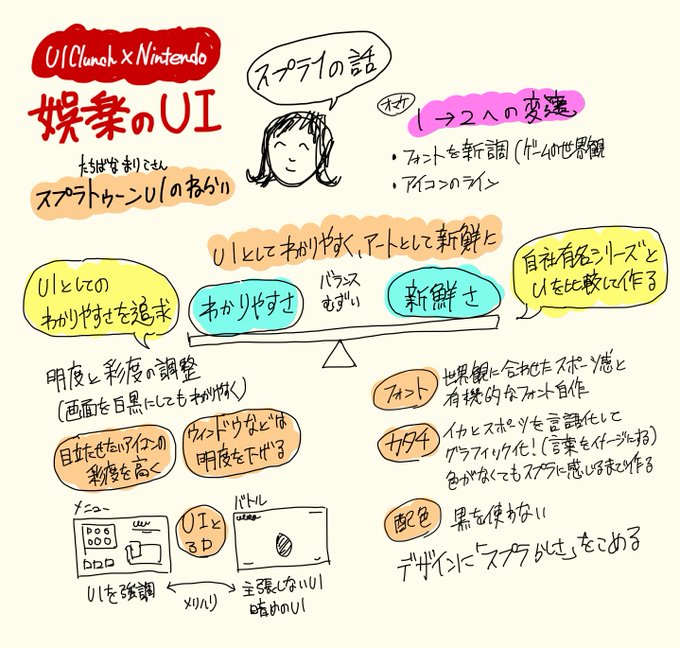 UI Clunch × Nintendo
娯楽のUI
スプラ1の話
オマケ
1→2への変遷
・フォントを新調(ゲームの世界観
・アイコンのライン
たちばなまりこさん
スプラトゥーンUIのねらい
UIとしてわかりやすく、アートとして新鮮に
UIとしての
わかりやすさを追求
わかりやすさ
バランス
むずい
新鮮さ
自社有名シリーズと
UIを比較して作る
明度と彩度の調整
(画面を白黒にしてもわかりやすく)
目立たせたいアイコンの
彩度を高く
ウィンドウなどは
明度を下げる
メニュー
UIと
3D
バトル
UIを強調
メリハリ
主張しないUI
暗めのUI
フォント
世界観に合わせたスポーツ感と
有機的なフォント自作
カタチ
イカとスポーツを言語化して
グラフィック化!(言葉をイメージにする)
色がなくてもスプラに感じるまで作る
配色
黒を使わない
デザインに「スプラらしさ」をこめる